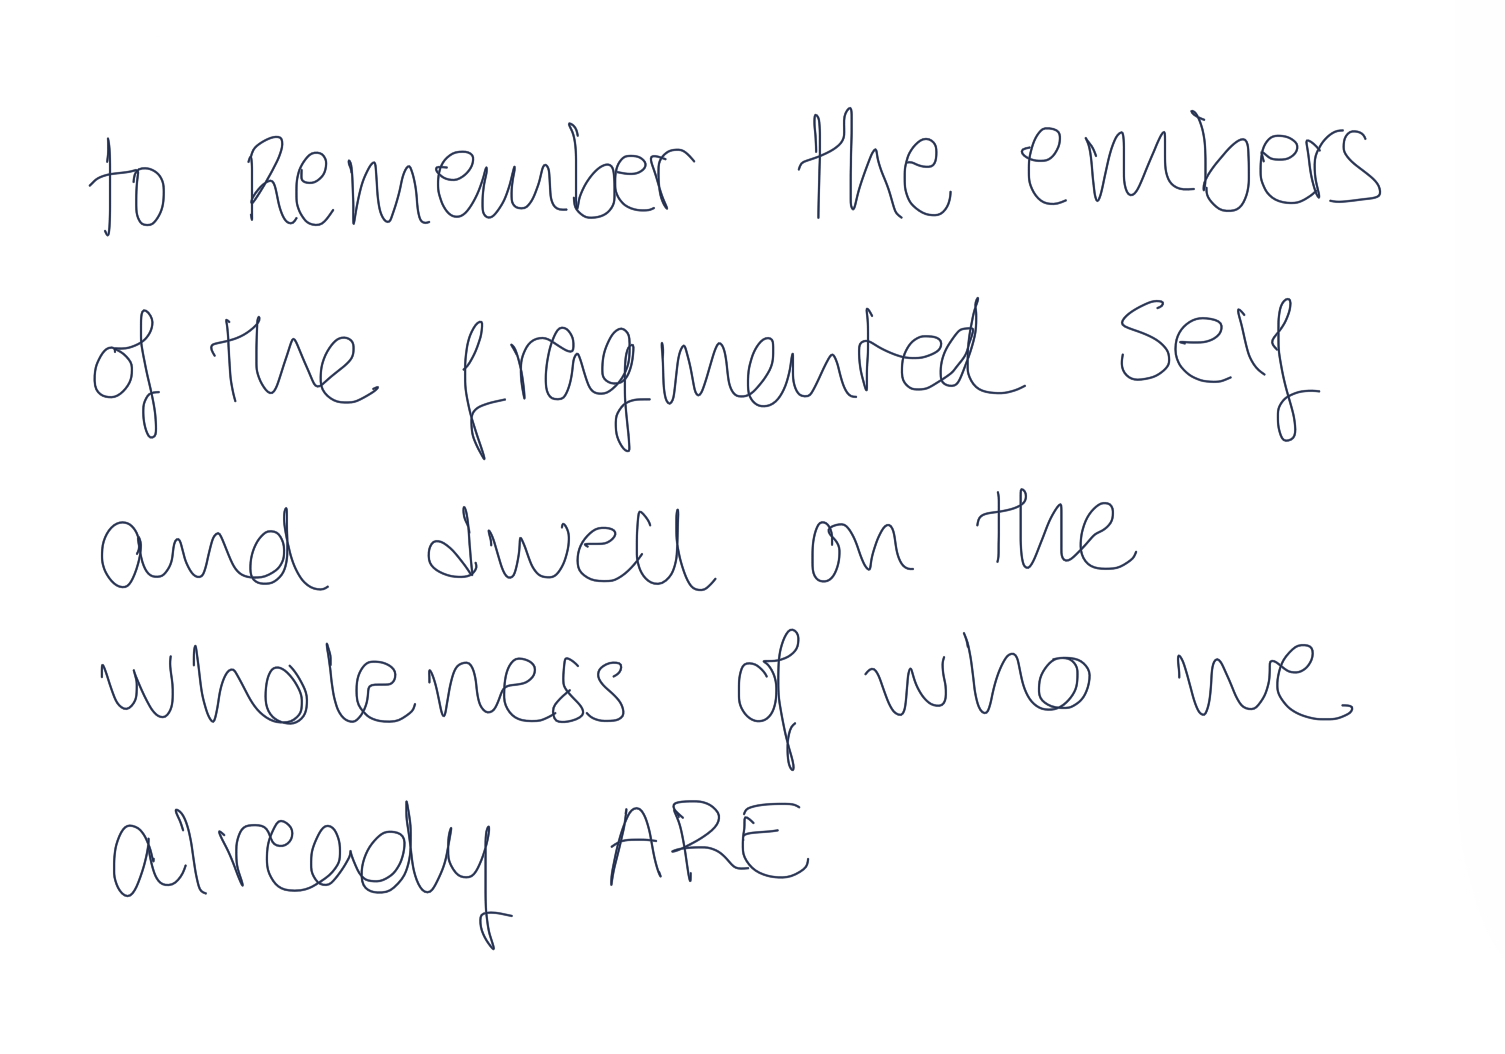 to Remember the embers
of the fragmented self
and dwell on the
wholeness of who we
already ARE